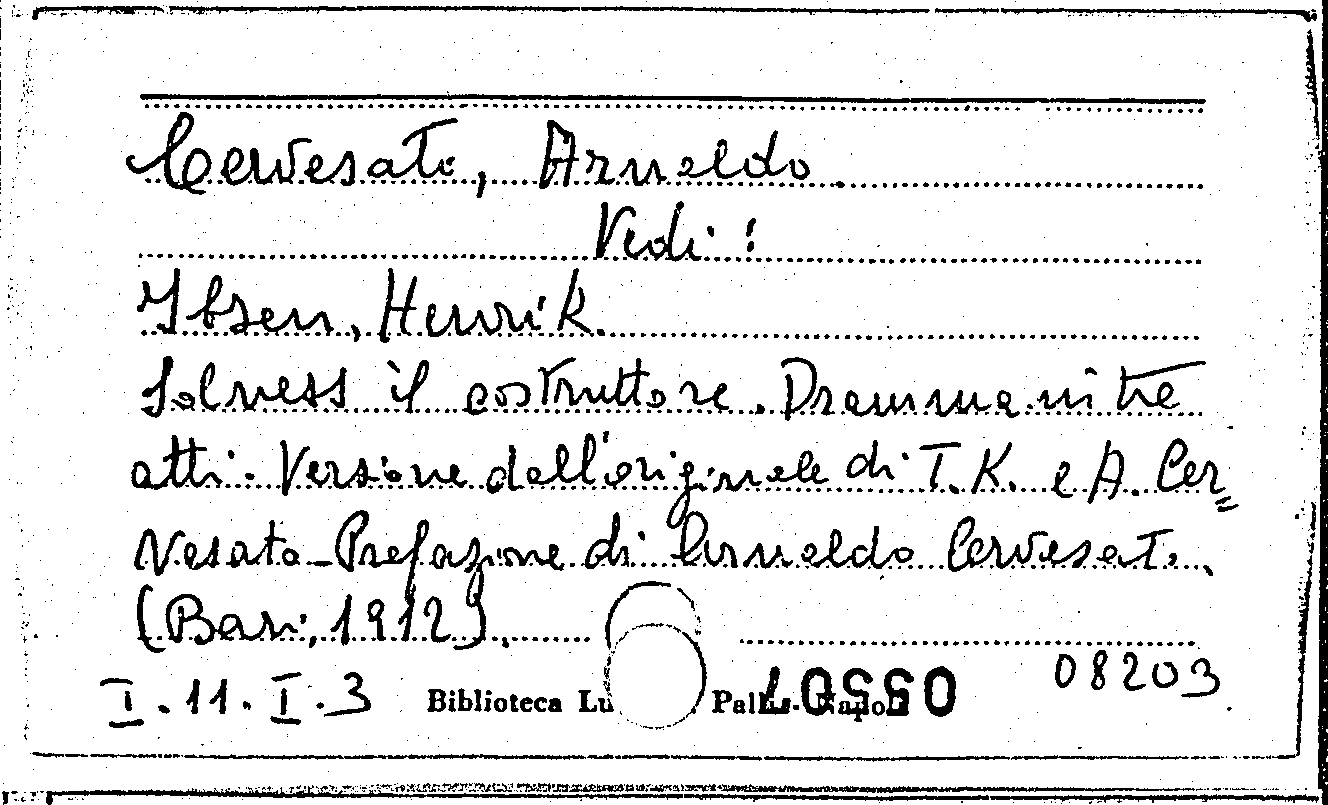 Cervesato, Arnaldo.
Vedi:
Ibsen, Henrik.
Solness il costruttore. Dramma in tre
atti. Versione dall'originale di T. K. e A. Cer=
vesato - Prefazione di Arnaldo Cervesato.
(Bari, 1912).
I. 11. I. 3
08203
Biblioteca Lu